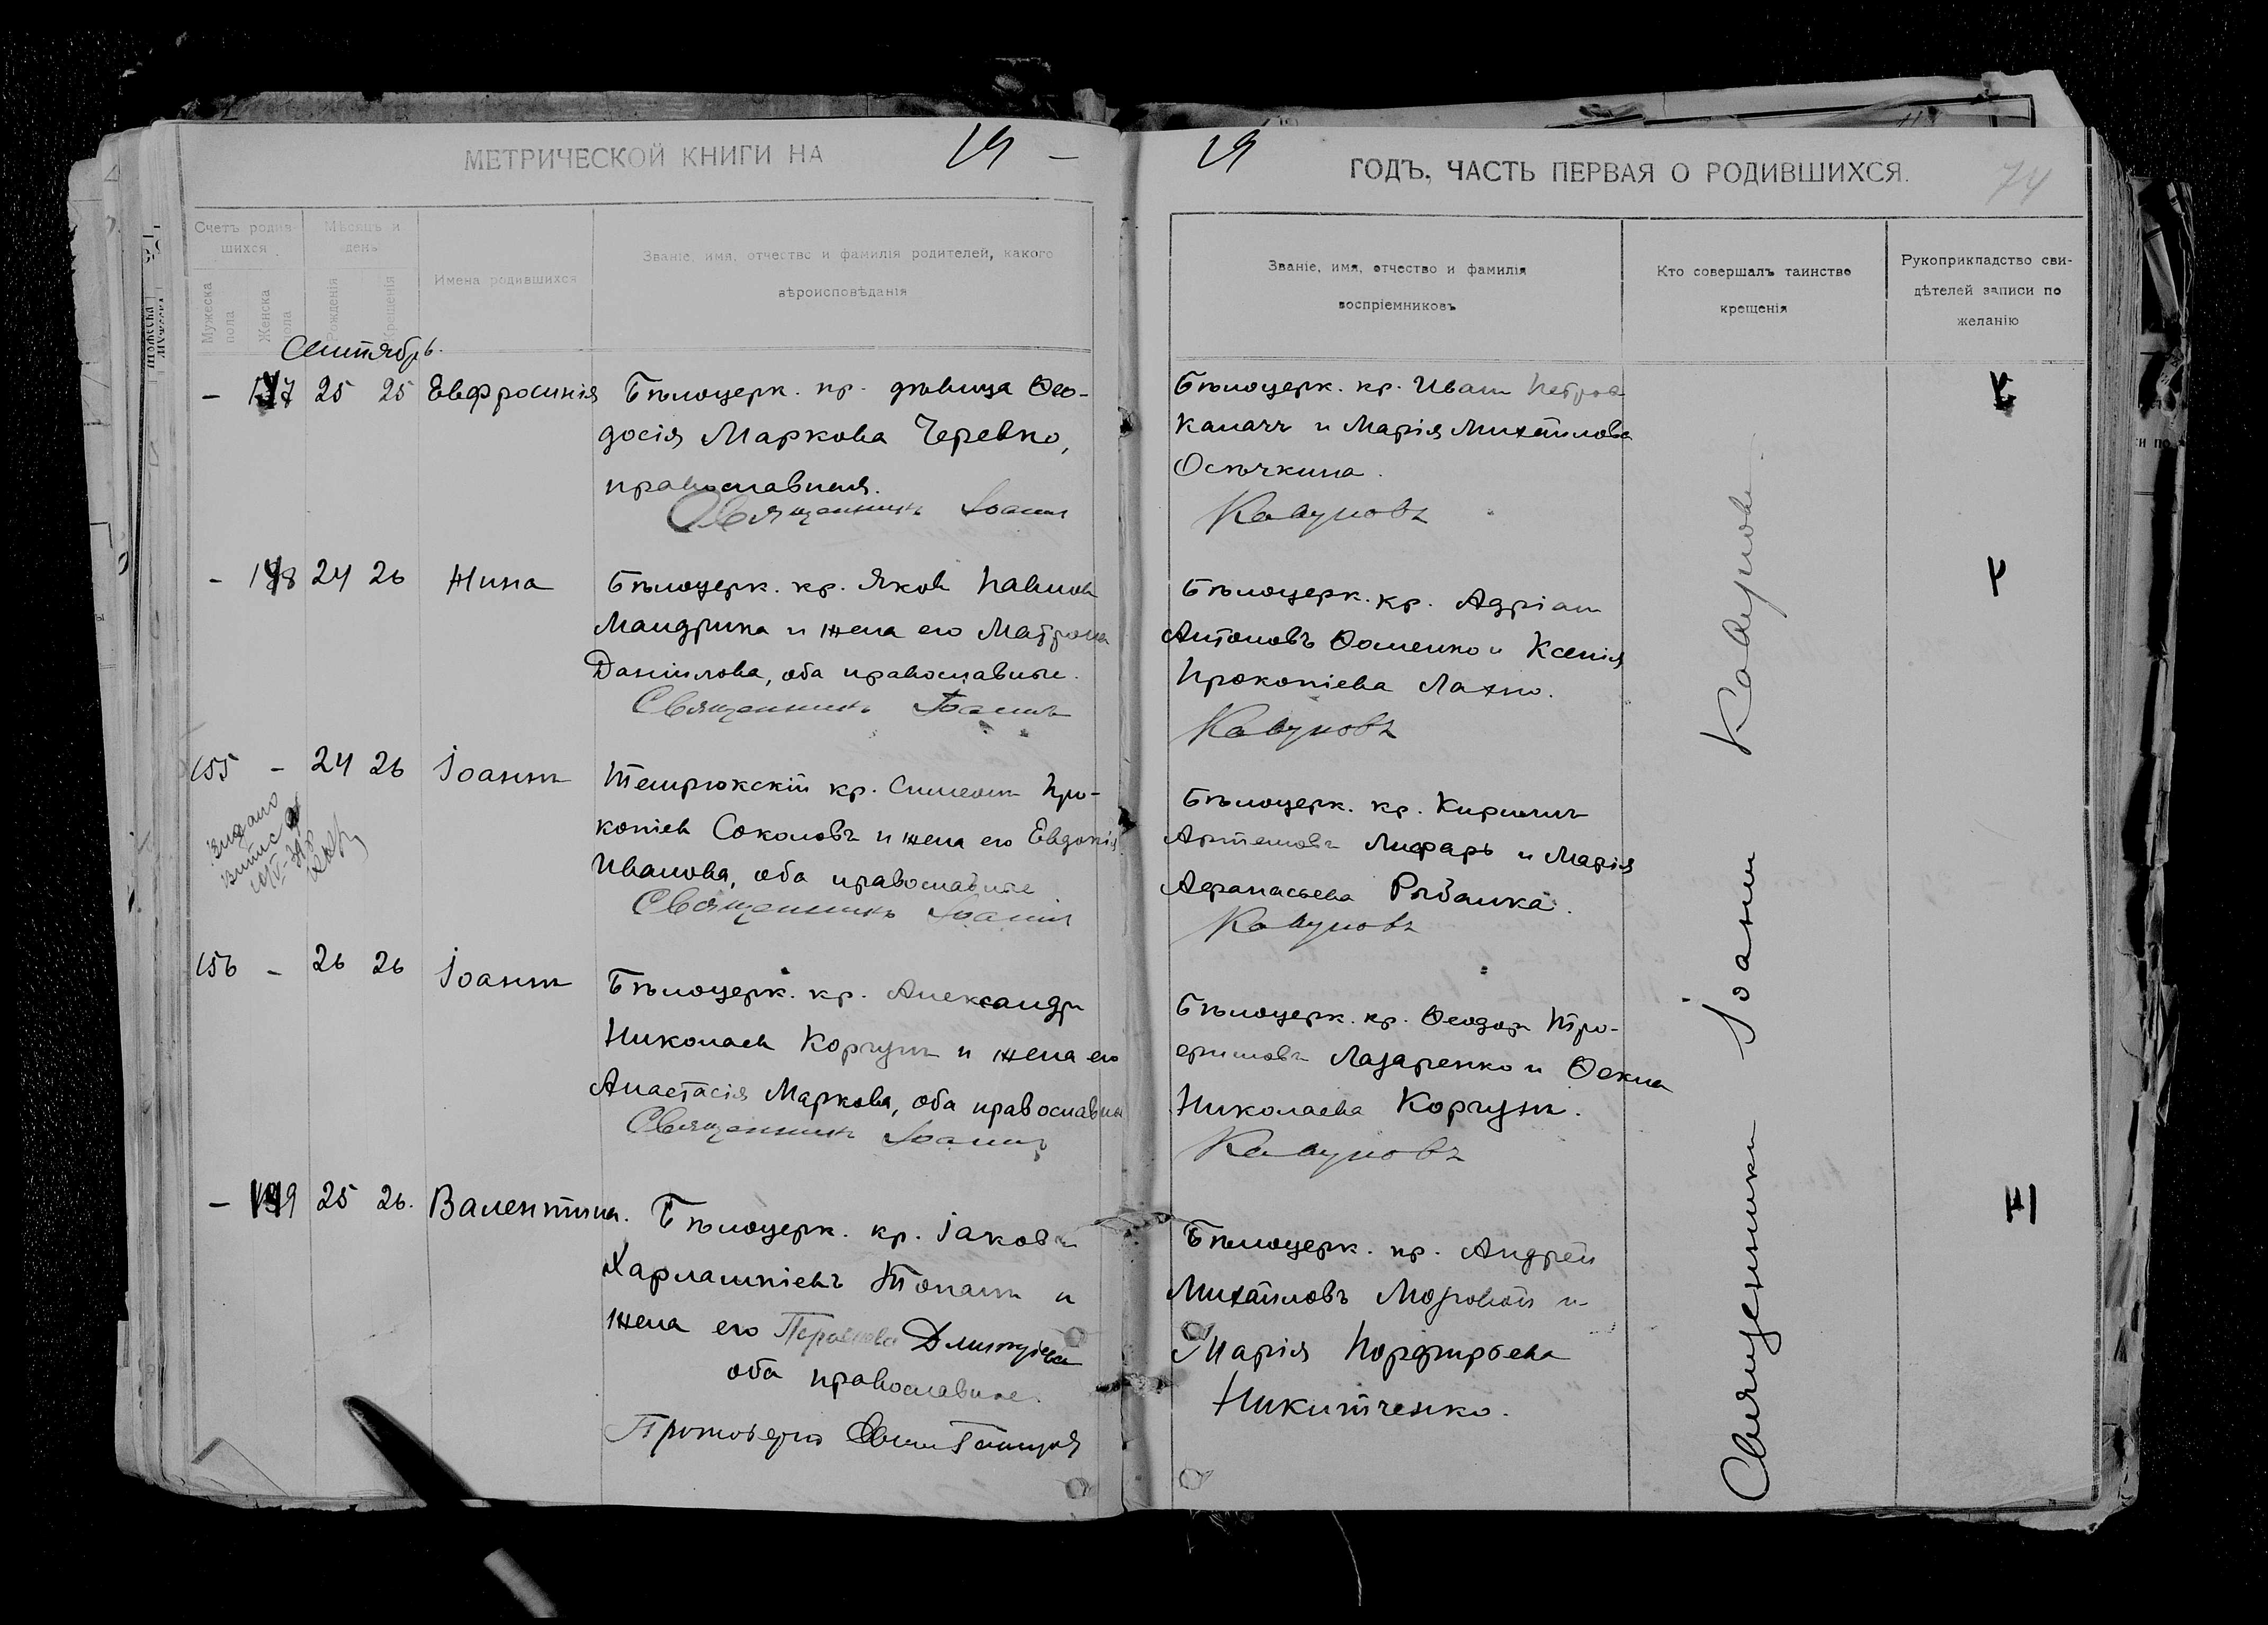 МЕТРИЧЕСКОЙ КНИГИ НА 19 —
Счетъ родив-
шихся
Мужеска
пола
Женска
пола
Мѣсяцъ и
день
Рожденія
Крещенія
Имена родившихся
Званіе, имя, отчество и фамилія родителей, какого
вѣроисповѣданія
Сентябрь.
— 147 25 25 Евфросинія Бѣлоцерк. кр. дѣвица Ѳео-
досія Маркова Черевко,
православная.
Священникъ Іоаннъ
- 148 24 26 Нина Бѣлоцерк. кр. Яковъ Павловъ
Мандрика и жена его Матрона
Даніилова, оба православные.
Священникъ Іоаннъ
155 - 24 26 Іоаннъ Темрюкскій кр. Симеонъ Про-
копіевъ Соколовъ и жена его Евдокія
Иванова, оба православные
Священникъ Іоаннъ
156 - 26 26 Іоаннъ Бѣлоцерк. кр. Александръ
Николаевъ Коргунъ и жена его
Анастасія Маркова, оба православны
Священникъ Іоаннъ
— 149 25 26. Валентина. Бѣлоцерк. кр. Іаковъ
Харлампіевъ Топанъ и
жена его Димитріева
оба православные.
Протоіерей
19 ГОДЪ, ЧАСТЬ ПЕРВАЯ О РОДИВШИХСЯ. 74
Званіе, имя, отчество и фамилія
воспріемниковъ
Кто совершалъ таинство
крещенія
Рукоприкладство сви-
дѣтелей записи по
желанію
Бѣлоцерк. кр. Иванъ Петровъ
Калачъ и Марія Михайлова
Осѣчкина.
Кавуновъ
Бѣлоцерк. кр. Адріанъ
Антоновъ Ѳоменко и Ксенія
Прокопіева Лахно.
Кавуновъ
Бѣлоцерк. кр. Кириллъ
Артемовъ Лифарь и Марія
Афанасьева Рыбалка.
Кавуновъ
Бѣлоцерк. кр. Ѳеодоръ Тро-
фимовъ Лазаренко и Ѳекла
Николаева Коргунъ.
Кавуновъ
Бѣлоцерк. кр. Андрей
Михайловъ Мозговой и
Марія Порфирьева
Никитченко.
Священникъ Іоаннъ Кавуновъ